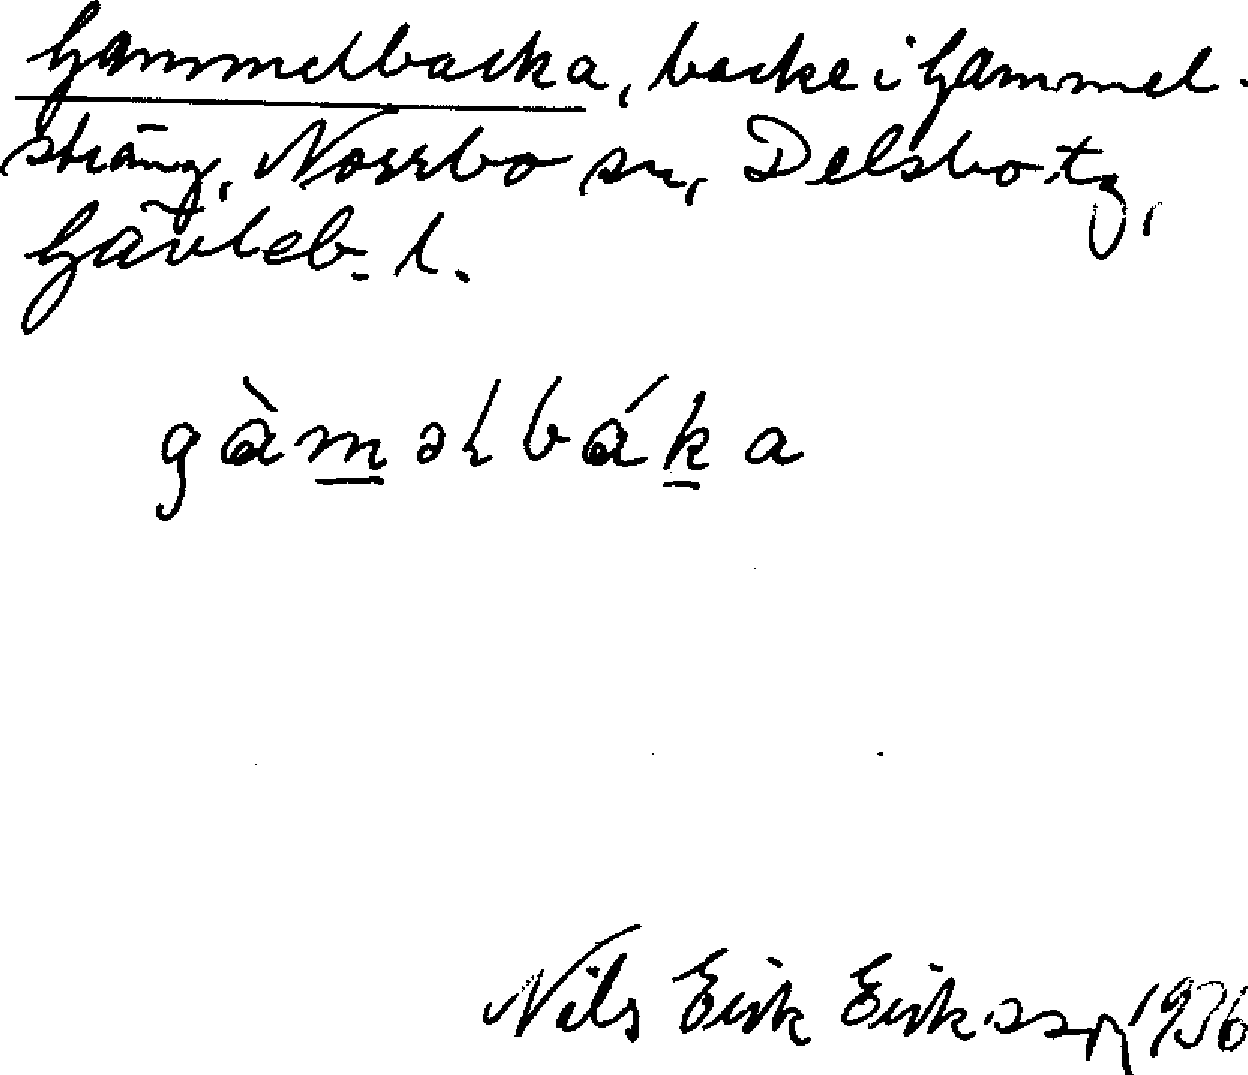 Gammelbacka, backe i Gammel-
sträng, Norrbo sn, Delsbo tg,
Gävleb. l.
gàm̲əlbák̲a
Nils Erik Eriksson 1936